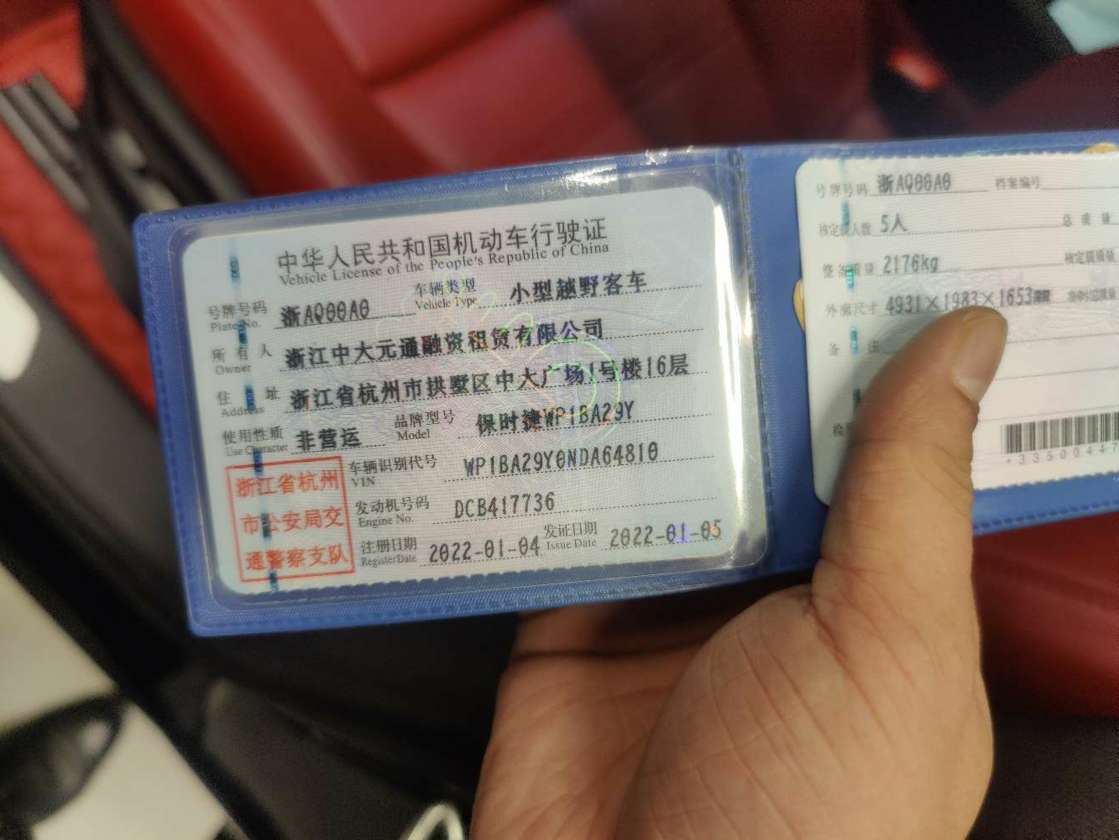 中华人民共和国机动车行驶证
Vehicle License of the People's Republic of China
号牌号码 浙AQ00A0 车辆类型 小型越野客车
Plate No. Vehicle Type
所有人 浙江中大元通融资租赁有限公司
Owner
住址 浙江省杭州市拱墅区中大广场1号楼16层
Address
使用性质 非营运 品牌型号 保时捷WP1BA29Y
Use Character Model
浙江省杭州
市公安局交
通警察支队
车辆识别代号 WP1BA29Y0NDA64810
VIN
发动机号码 DCB417736
Engine No.
注册日期 2022-01-04 发证日期 2022-01-05
Register Date Issue Date
号牌号码 浙AQ00A0 档案编号
核定载人数 5人 总质量
整备质量 2176kg 核定载质量
外廓尺寸 4931×1983×1653
备注